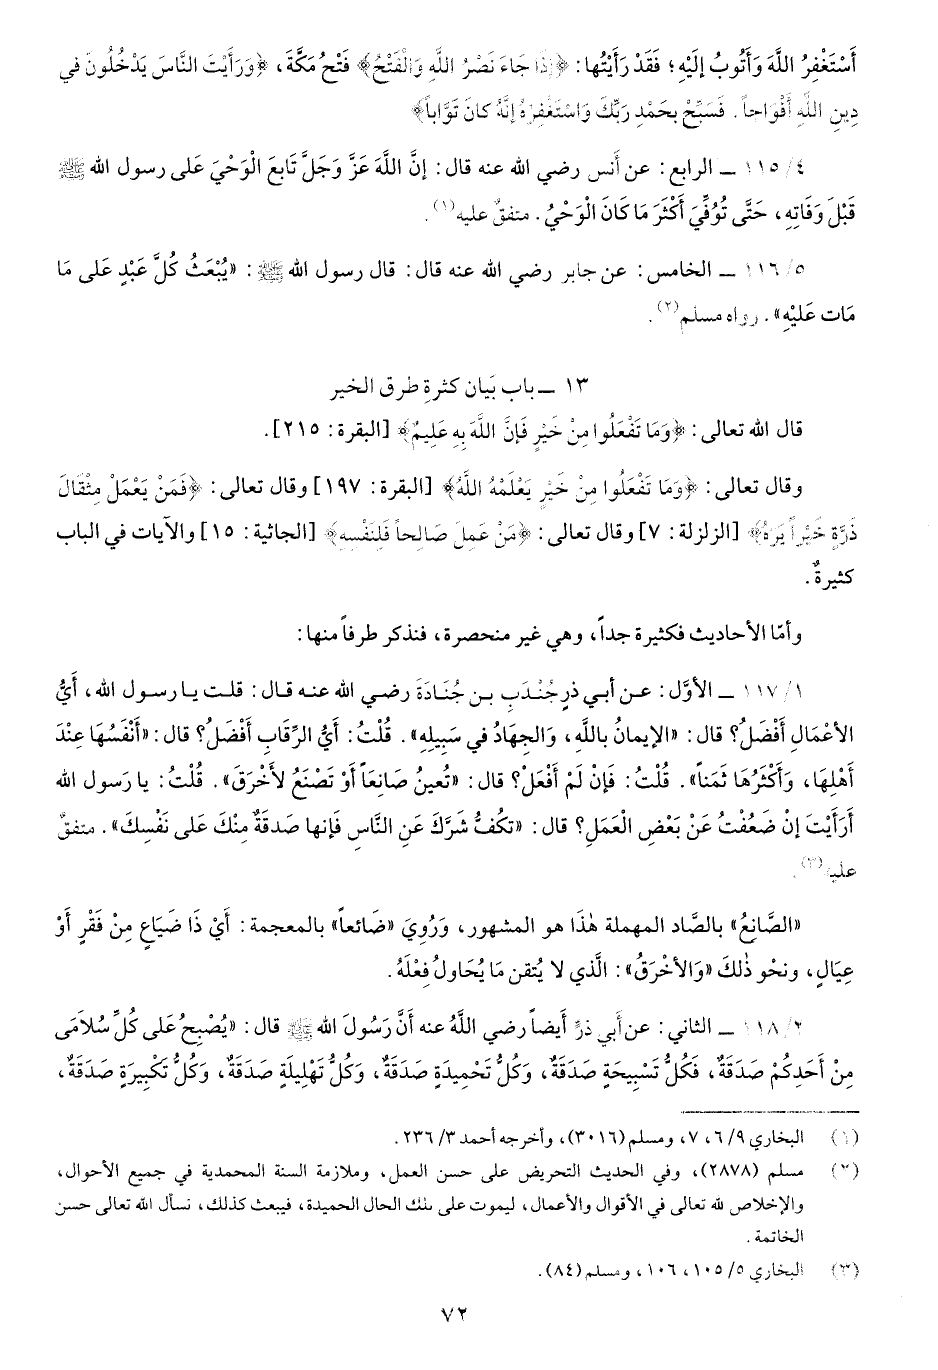 أَسْتَغْفِرُ اللَّهَ وَأَتُوبُ إِلَيْهِ؛ فَقَدْ رَأَيْتُها: ﴿إِذَا جَاءَ نَصْرُ اللَّهِ وَالْفَتْحُ﴾ فَتْحُ مَكَّةَ، ﴿وَرَأَيْتَ النَّاسَ يَدْخُلُونَ فِي
دِينِ اللَّهِ أَفْوَاجاً. فَسَبِّحْ بِحَمْدِ رَبِّكَ وَاسْتَغْفِرْهُ إِنَّهُ كَانَ تَوَّاباً﴾
١١٥/٤ ــ الرابع: عن أنس رضي الله عنه قال: إنَّ اللَّهَ عَزَّ وَجَلَّ تَابَعَ الْوَحْيَ عَلى رسول الله ﷺ
قَبْلَ وَفَاتِهِ، حَتَّى تُوُفِّيَ أَكْثَرَ مَا كَانَ الْوَحْيُ. متفقٌ عليه(١).
١١٦/٥ ــ الخامس: عن جابر رضي الله عنه قال: قال رسول الله ﷺ: «يُبْعَثُ كُلُّ عَبْدٍ عَلى مَا
مَات عَلَيْهِ». رواه مسلم(٢).
١٣ ــ باب بَيان كثرةِ طرق الخير
قال الله تعالى: ﴿وَمَا تَفْعَلُوا مِنْ خَيْرٍ فَإِنَّ اللَّهَ بِهِ عَلِيمٌ﴾ [البقرة: ٢١٥].
وقال تعالى: ﴿وَمَا تَفْعَلُوا مِنْ خَيْرٍ يَعْلَمْهُ اللَّهُ﴾ [البقرة: ١٩٧] وقال تعالى: ﴿فَمَنْ يَعْمَلْ مِثْقَالَ
ذَرَّةٍ خَيْراً يَرَهُ﴾ [الزلزلة: ٧] وقال تعالى: ﴿مَنْ عَمِلَ صَالِحاً فَلِنَفْسِهِ﴾ [الجاثية: ١٥] والآيات في الباب
كثيرةٌ.
وأمّا الأحاديث فكثيرة جداً، وهي غير منحصرة، فنذكر طرفاً منها:
١١٧/١ ــ الأوَّل: عن أبي ذرٍ جُنْدَبِ بنِ جُنَادَةَ رضي الله عنه قال: قلت يا رسول الله، أيُّ
الأعْمَالِ أفْضَلُ؟ قال: «الإيمانُ باللَّهِ، وَالجِهَادُ في سَبِيلِهِ». قُلْتُ: أيُّ الرِّقَابِ أفْضَلُ؟ قال: «أنْفَسُهَا عِنْدَ
أهْلِهَا، وَأكْثَرُهَا ثَمَناً». قُلْتُ: فَإنْ لَمْ أفْعَلْ؟ قال: «تُعينُ صَانِعاً أوْ تَصْنَعُ لأخْرَقَ». قُلْتُ: يا رَسول الله
أرَأيْتَ إنْ ضَعُفْتُ عَنْ بَعْضِ الْعَمَلِ؟ قال: «تَكُفُّ شَرَّكَ عَنِ النَّاسِ فَإنها صَدقةٌ مِنْكَ عَلى نَفْسِكَ». متفقٌ
عليه(٣).
«الصَّانِعُ» بالصَّاد المهملة هٰذَا هو المشهور، وَرُوِيَ «ضَائعاً» بالمعجمة: أيْ ذَا ضَيَاعٍ مِنْ فَقْرٍ أوْ
عِيَالٍ، ونحْو ذٰلكَ «وَالأخْرَقُ»: الَّذي لا يُتقن مَا يُحَاولُ فِعْلَهُ.
١١٨/٢ ــ الثاني: عن أبي ذرٍّ أيضاً رضي اللَّهُ عنه أنَّ رَسُولَ الله ﷺ قال: «يُصْبِحُ عَلى كُلِّ سُلامَى
مِنْ أَحَدِكُمْ صَدَقَةٌ، فَكُلُّ تَسْبِيحَةٍ صَدَقَةٌ، وَكُلُّ تَحْمِيدَةٍ صَدَقَةٌ، وَكُلُّ تَهْلِيلَةٍ صَدَقَةٌ، وَكُلُّ تَكْبِيرَةٍ صَدَقَةٌ،
(١) البخاري ٦/٩، ٧، ومسلم (٣٠١٦)، وأخرجه أحمد ٢٣٦/٣.
(٢) مسلم (٢٨٧٨)، وفي الحديث التحريض على حسن العمل، وملازمة السنة المحمدية في جميع الأحوال،
والإخلاص لله تعالى في الأقوال والأعمال، ليموت على تلك الحال الحميدة، فيبعث كذلك، نسأل الله تعالى حسن
الخاتمة.
(٣) البخاري ١٠٥/٥، ١٠٦، ومسلم (٨٤).
٧٢